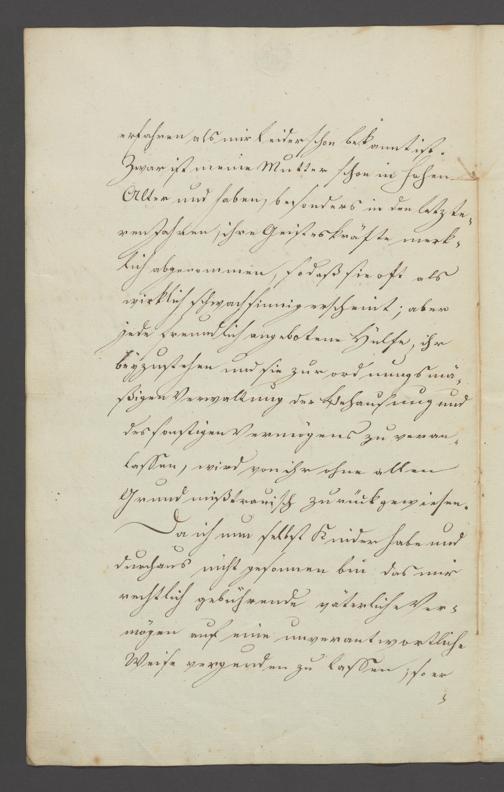 erfahren als mir leider schon bekannt ist.
Zwar ist meine Mutter schon in hohem
Alter und haben, besonders in den letzte-
ren Jahren, ihre Geisteskräfte merk-
lich abgenommen, so daß sie oft als
wirklich schwachsinnig erscheint; aber
jede freundlich angebotene Hülfe, ihr
beyzustehen und sie zur ordnungsmä-
ßigen Verwaltung der Behausung und
des sonstigen Vermögens zu veran-
lassen, wird von ihr ohne allen
Grund mißtrauisch zurückgewiesen.
Da ich nun selbst Kinder habe und
durchaus nicht gesonnen bin das mir
rechtlich gebührende väterliche Ver-
mögen auf eine unverantwortliche
Weise vergeuden zu lassen; so er